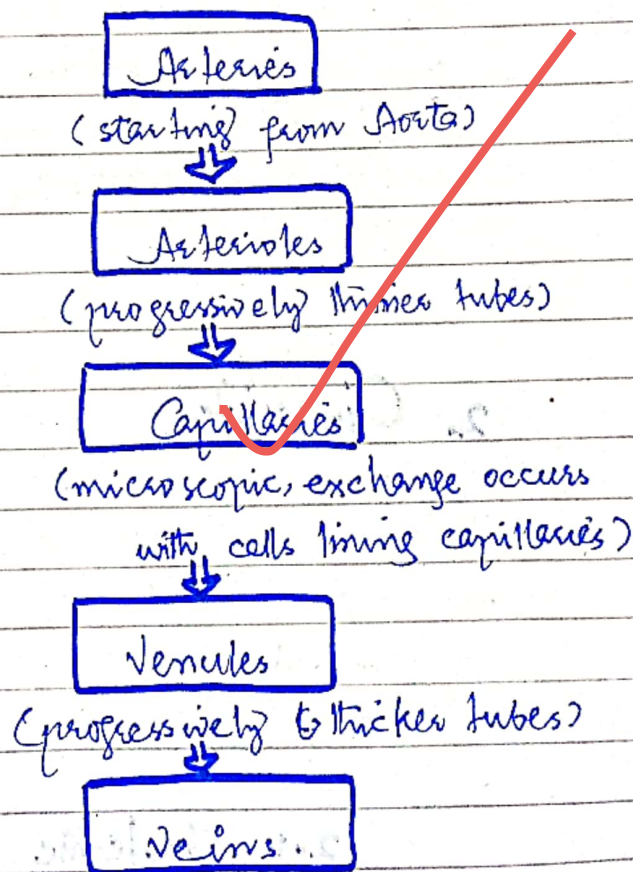 Arteries
(starting from Aorta)
Arterioles
(progressively thinner tubes)
Capillaries
(microscopic, exchange occurs
with cells lining capillaries)
Venules
(progressively to thicker tubes)
Veins